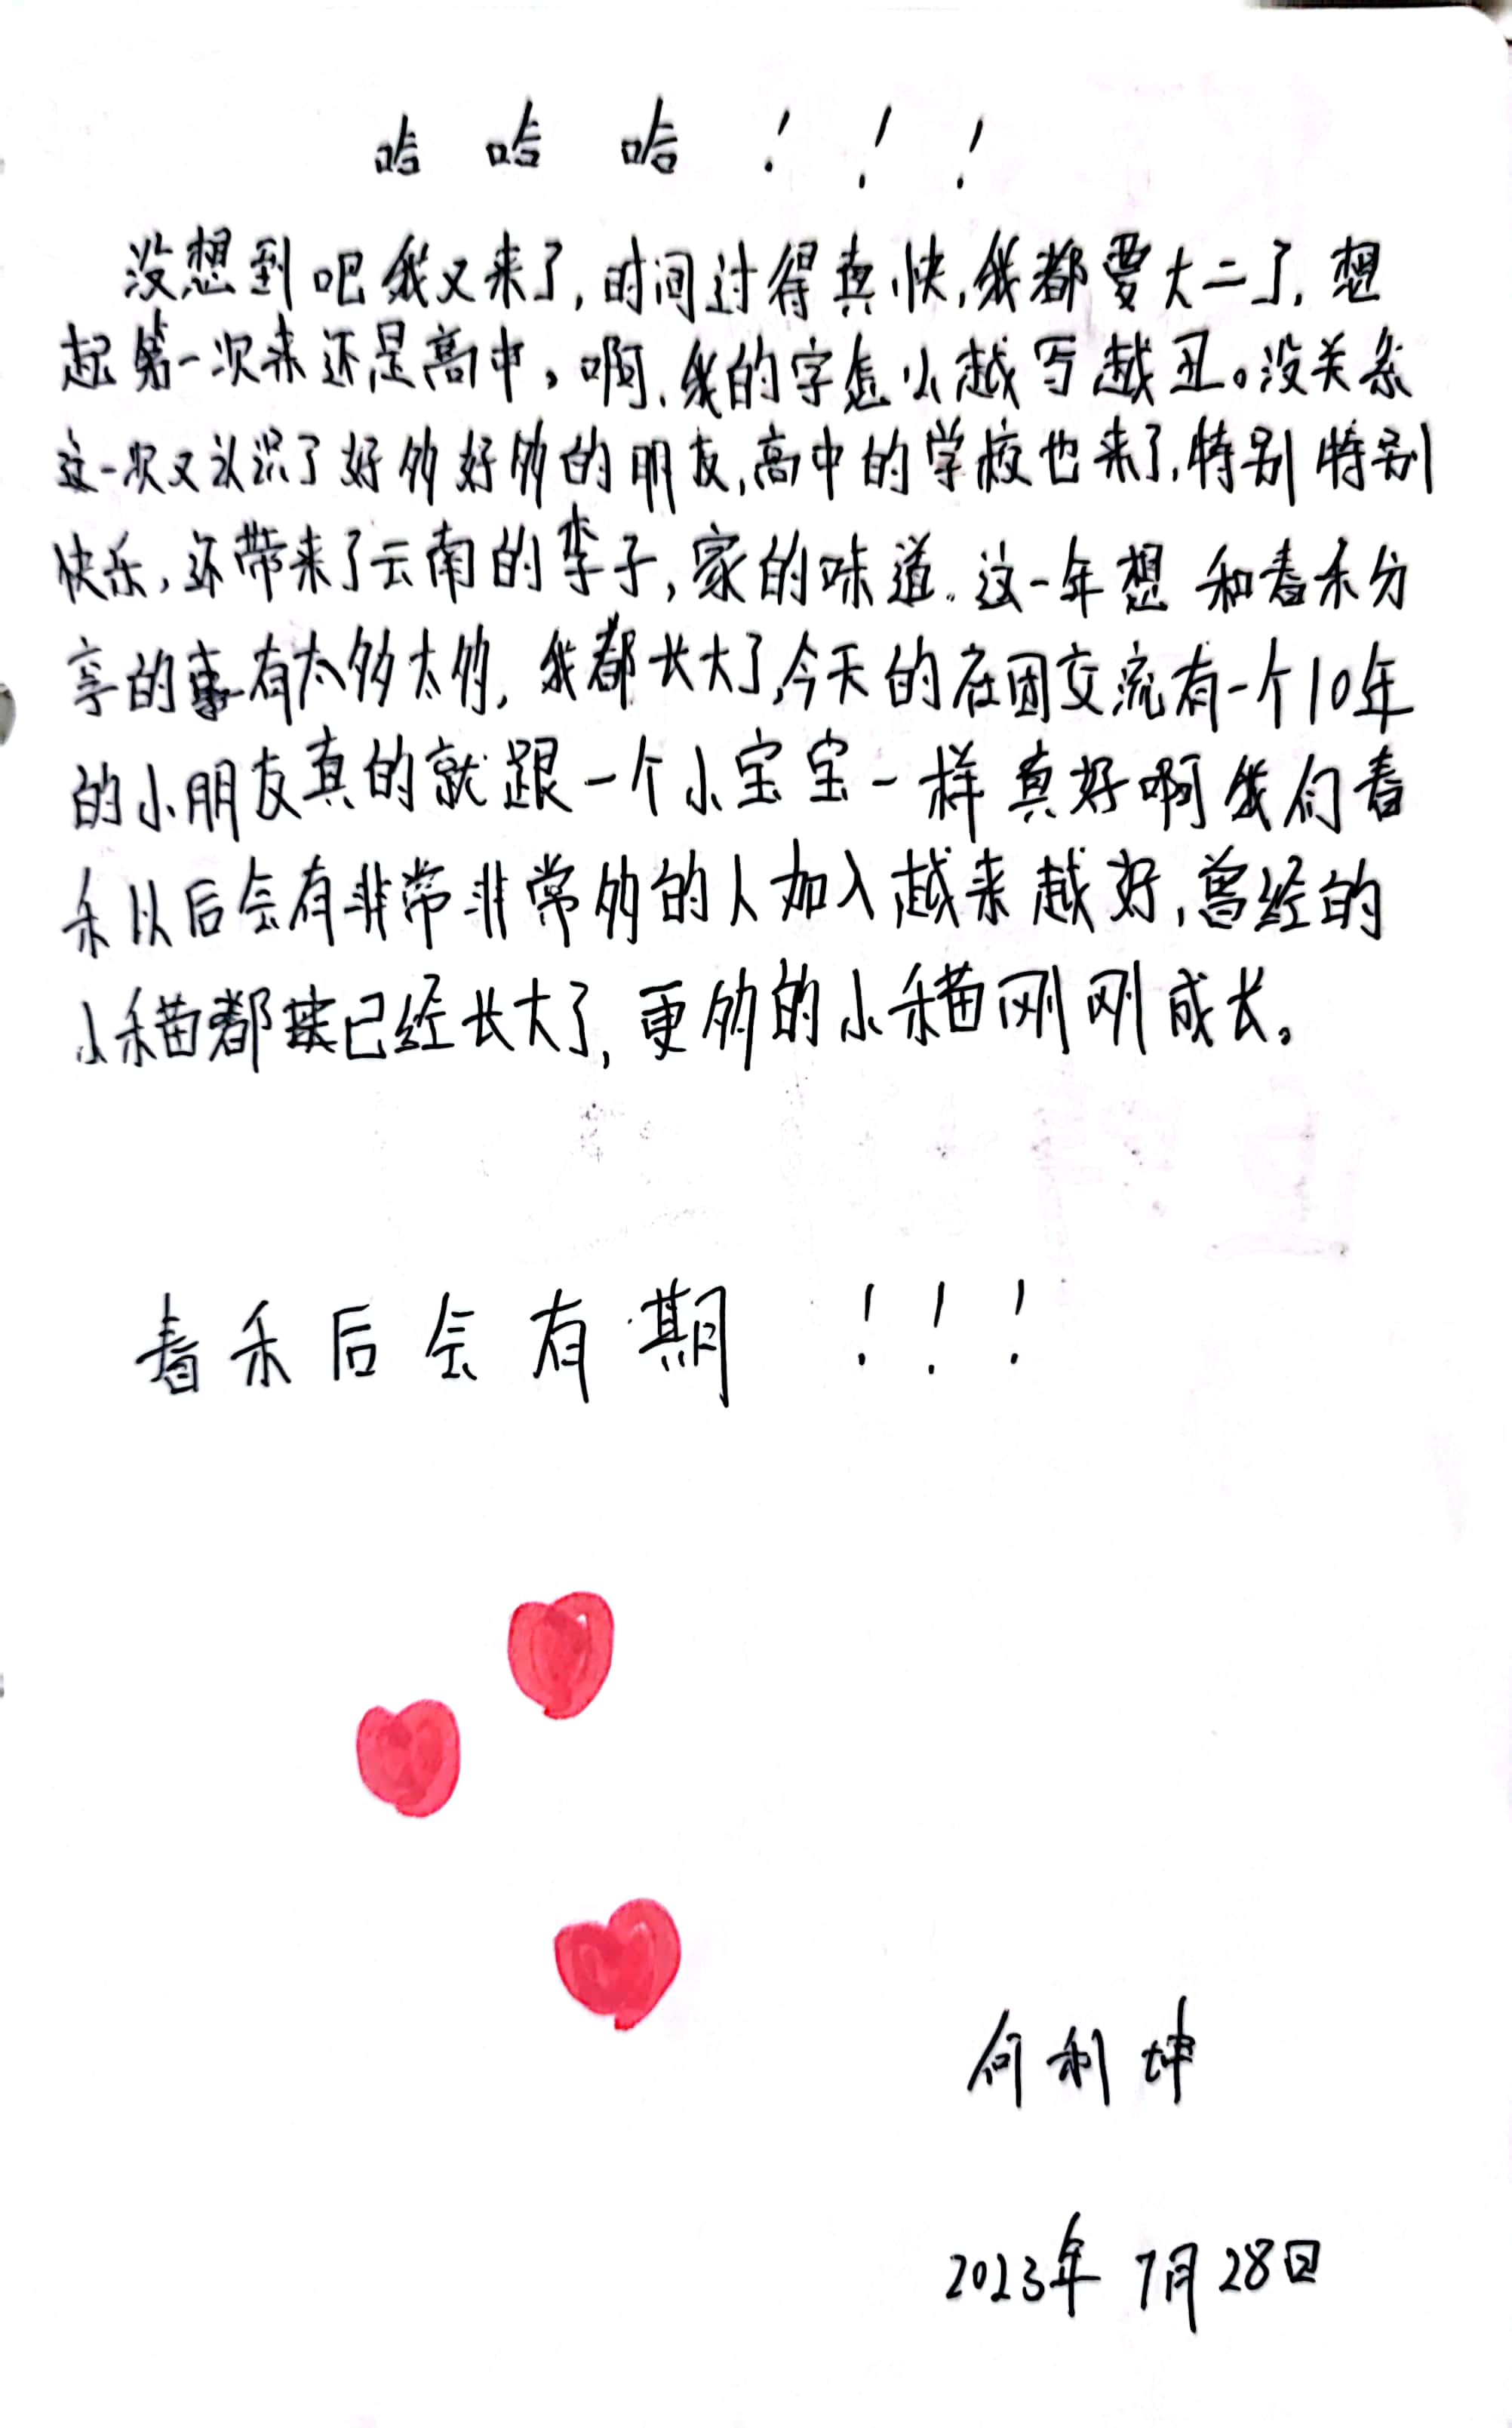 哈哈哈!!!
没想到吧我又来了,时间过得真快,我都要大二了,想
起第一次来还是高中,啊,我的字怎么越写越丑。没关系
这一次又认识了好多好多的朋友,高中的学校也来了,特别特别
快乐,还带来了云南的李子,家的味道。这一年想和春禾分
享的事有太多太多,我都长大了,今天的在团交流有一个10年
的小朋友真的就跟一个小宝宝一样真好啊我们春
禾以后会有非常非常多的人加入越来越好,曾经的
小禾苗都已经长大了,更多的小禾苗刚刚成长。
春禾后会有期!!!
何利坤
2023年7月28日